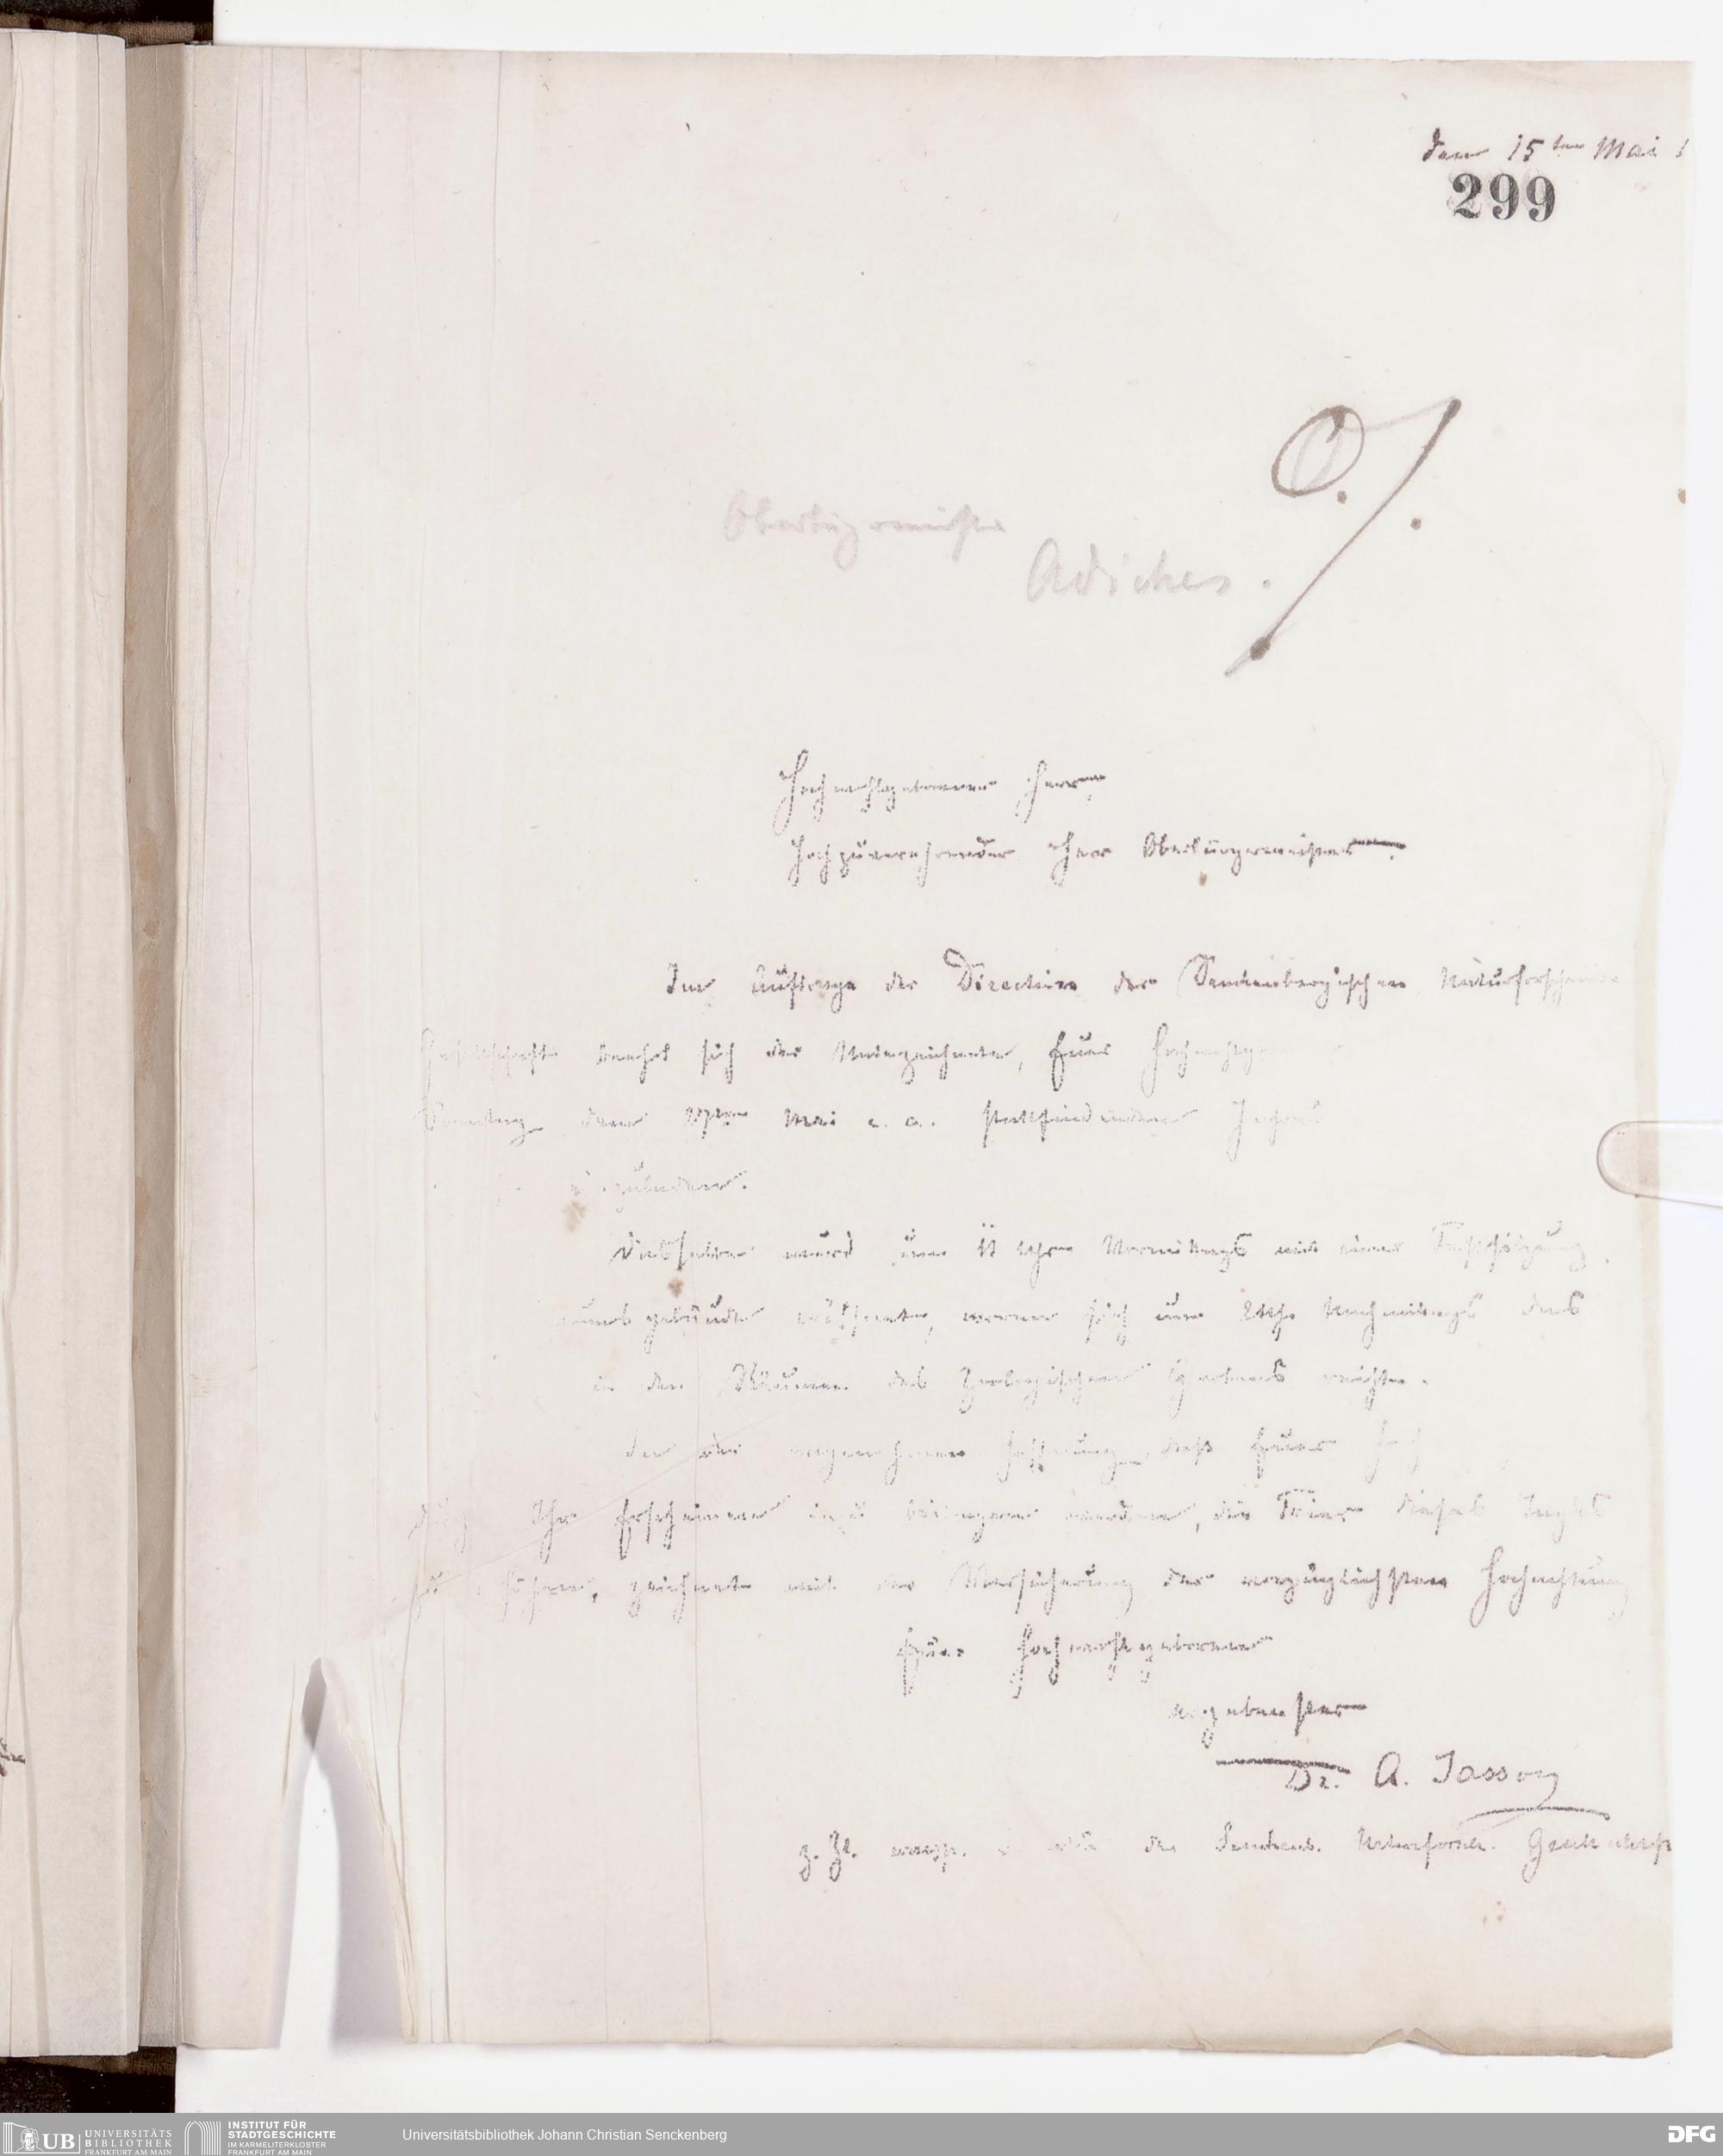 den 15ten Mai
299
O.
Oberbürgermeister
Adickes.
Hochwohlgeborener Herr,
Hochzuverehrender Herr Oberbürgermeister.
Im Auftrage der Direction der Senckenbergischen Naturforschenden
Gesellschaft beehrt sich der Unterzeichnete, Euer
Sonntag den Mai c. a. stattfindenden
einzuladen.
Dasselbe wird um 11 Uhr Vormittags mit einer Festsitzung
eröffnet, woran sich um 2 Uhr Nachmittags das
in den Räumen des Zoologischen Gartens reiht.
In der angenehmen Hoffnung, daß Euer
durch Ihr Erscheinen dazu beitragen werden, die Feier dieses Tages
zu erhöhen, zeichnet mit der Versicherung der vorzüglichsten Hochachtung
Euer Hochwohlgeboren
ergebenster
Dr. A. Jassoy
z. Zt. der Senckenb. Naturforsch. Gesellschaft
UB UNIVERSITÄTS
BIBLIOTHEK
FRANKFURT AM MAIN
INSTITUT FÜR
STADTGESCHICHTE
IM KARMELITERKLOSTER
FRANKFURT AM MAIN
Universitätsbibliothek Johann Christian Senckenberg
DFG